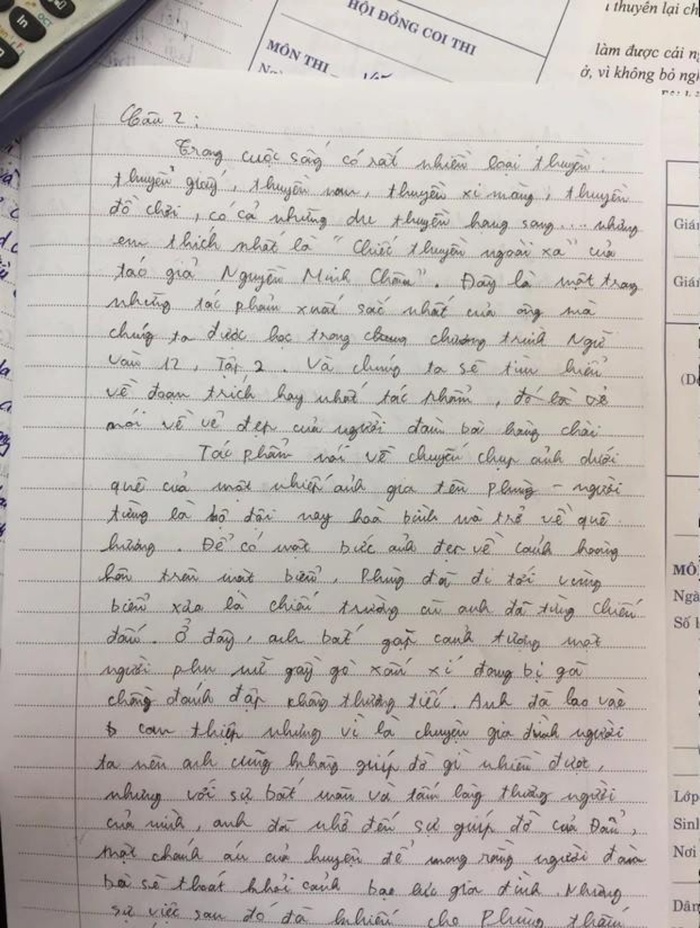 HỘI ĐỒNG COI THI
MÔN THI
thuyền lại ch
làm được cái n
ở, vì không bỏ ng
Câu 2:
Trong cuộc sống có rất nhiều loại thuyền:
thuyền giấy, thuyền nan, thuyền xi măng, thuyền
đồ chơi, có cả những du thuyền hạng sang.... nhưng
em thích nhất là "Chiếc thuyền ngoài xa" của
tác giả Nguyễn Minh Châu". Đây là một trong
những tác phẩm xuất sắc nhất của ông mà
chúng ta được học trong chương trình Ngữ
văn 12, Tập 2. Và chúng ta sẽ tìm hiểu
về đoạn trích hay nhất tác phẩm,
nói về vẻ đẹp của người đàn bà hàng chài
Tác phẩm nói về chuyến chụp ảnh dưới
quê của một nhiếp ảnh gia tên Phùng - người
từng là bộ đội nay hoà bình mà trở về quê
hương. Để có một bức ảnh đẹp về cảnh hoàng
hôn trên mặt biển, Phùng đã đi tới vùng
biển xưa là chiến trường cũ anh đã từng chiến
đấu. Ở đây, anh bắt gặp cảnh tượng một
người phụ nữ gầy gò xấu xí đang bị gã
chồng đánh đập không thương tiếc. Anh đã lao vào
can thiệp nhưng vì là chuyện gia đình người
ta nên anh cũng không giúp đỡ gì nhiều được,
nhưng với sự bất mãn và tấm lòng thương người
của mình, anh đã nhờ đến sự giúp đỡ của Đẩu,
một chánh án của huyện để mong rằng người đàn
bà sẽ thoát khỏi cảnh bạo lực gia đình. Nhưng
sự việc sau đó đã khiến cho Phùng thấm
Giá
Giá
(Đ
MÔ
Ngà
Số b
Lớp
Sinh
Nơi
Dân